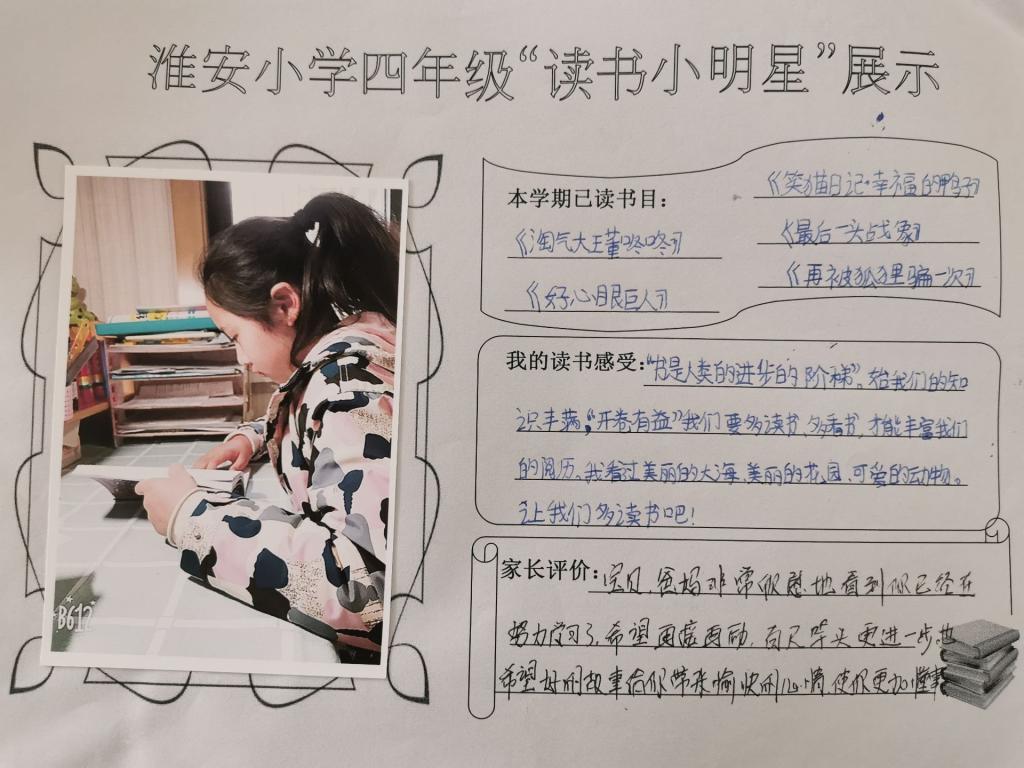 淮安小学四年级“读书小明星”展示
本学期已读书目：
《淘气大王董咚咚》
《好心眼巨人》
《笑猫日记·幸福的鸭子》
《最后一头战象》
《再被狐狸骗一次》
我的读书感受：“书是人类的进步的阶梯”。给我们的知
识丰满，“开卷有益”我们要多读书、多看书，才能丰富我们
的阅历。我看过美丽的大海、美丽的花园、可爱的动物。
让我们多读书吧！
家长评价：宝贝，爸妈非常欣慰地看到你已经在
努力学习了，希望再接再励，百尺竿头更进一步，也
希望好的故事给你带来愉快的心情，使你更加懂事
B612